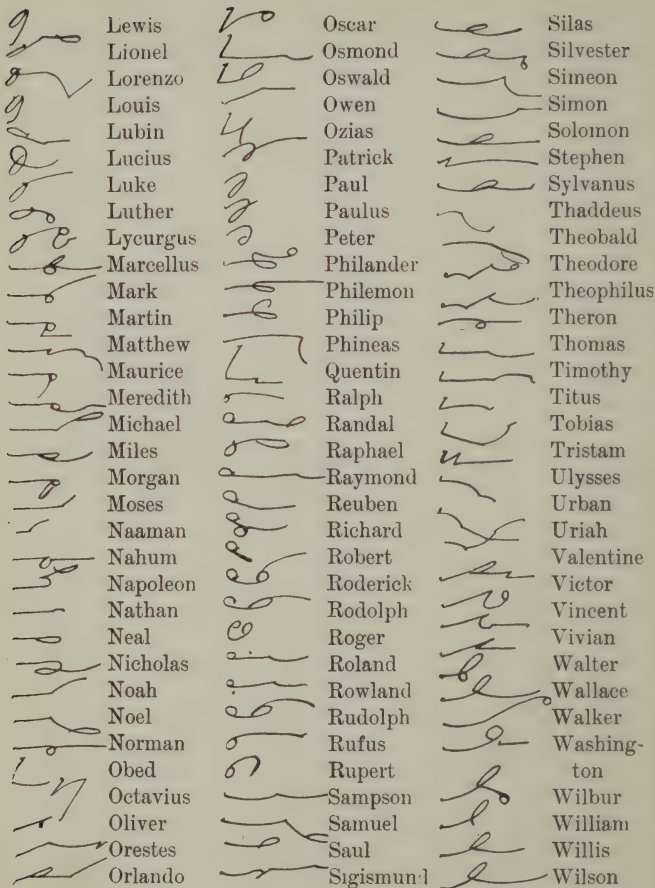 Lewis
Lionel
Lorenzo
Louis
Lubin
Lucius
Luke
Luther
Lycurgus
Marcellus
Mark
Martin
Matthew
Maurice
Meredith
Michael
Miles
Morgan
Moses
Naaman
Nahum
Napoleon
Nathan
Neal
Nicholas
Noah
Noel
Norman
Obed
Octavius
Oliver
Orestes
Orlando
Oscar
Osmond
Oswald
Owen
Ozias
Patrick
Paul
Paulus
Peter
Philander
Philemon
Philip
Phineas
Quentin
Ralph
Randal
Raphael
Raymond
Reuben
Richard
Robert
Roderick
Rodolph
Roger
Roland
Rowland
Rudolph
Rufus
Rupert
Sampson
Samuel
Saul
Sigismund
Silas
Silvester
Simeon
Simon
Solomon
Stephen
Sylvanus
Thaddeus
Theobald
Theodore
Theophilus
Theron
Thomas
Timothy
Titus
Tobias
Tristam
Ulysses
Urban
Uriah
Valentine
Victor
Vincent
Vivian
Walter
Wallace
Walker
Washing-
ton
Wilbur
William
Willis
Wilson